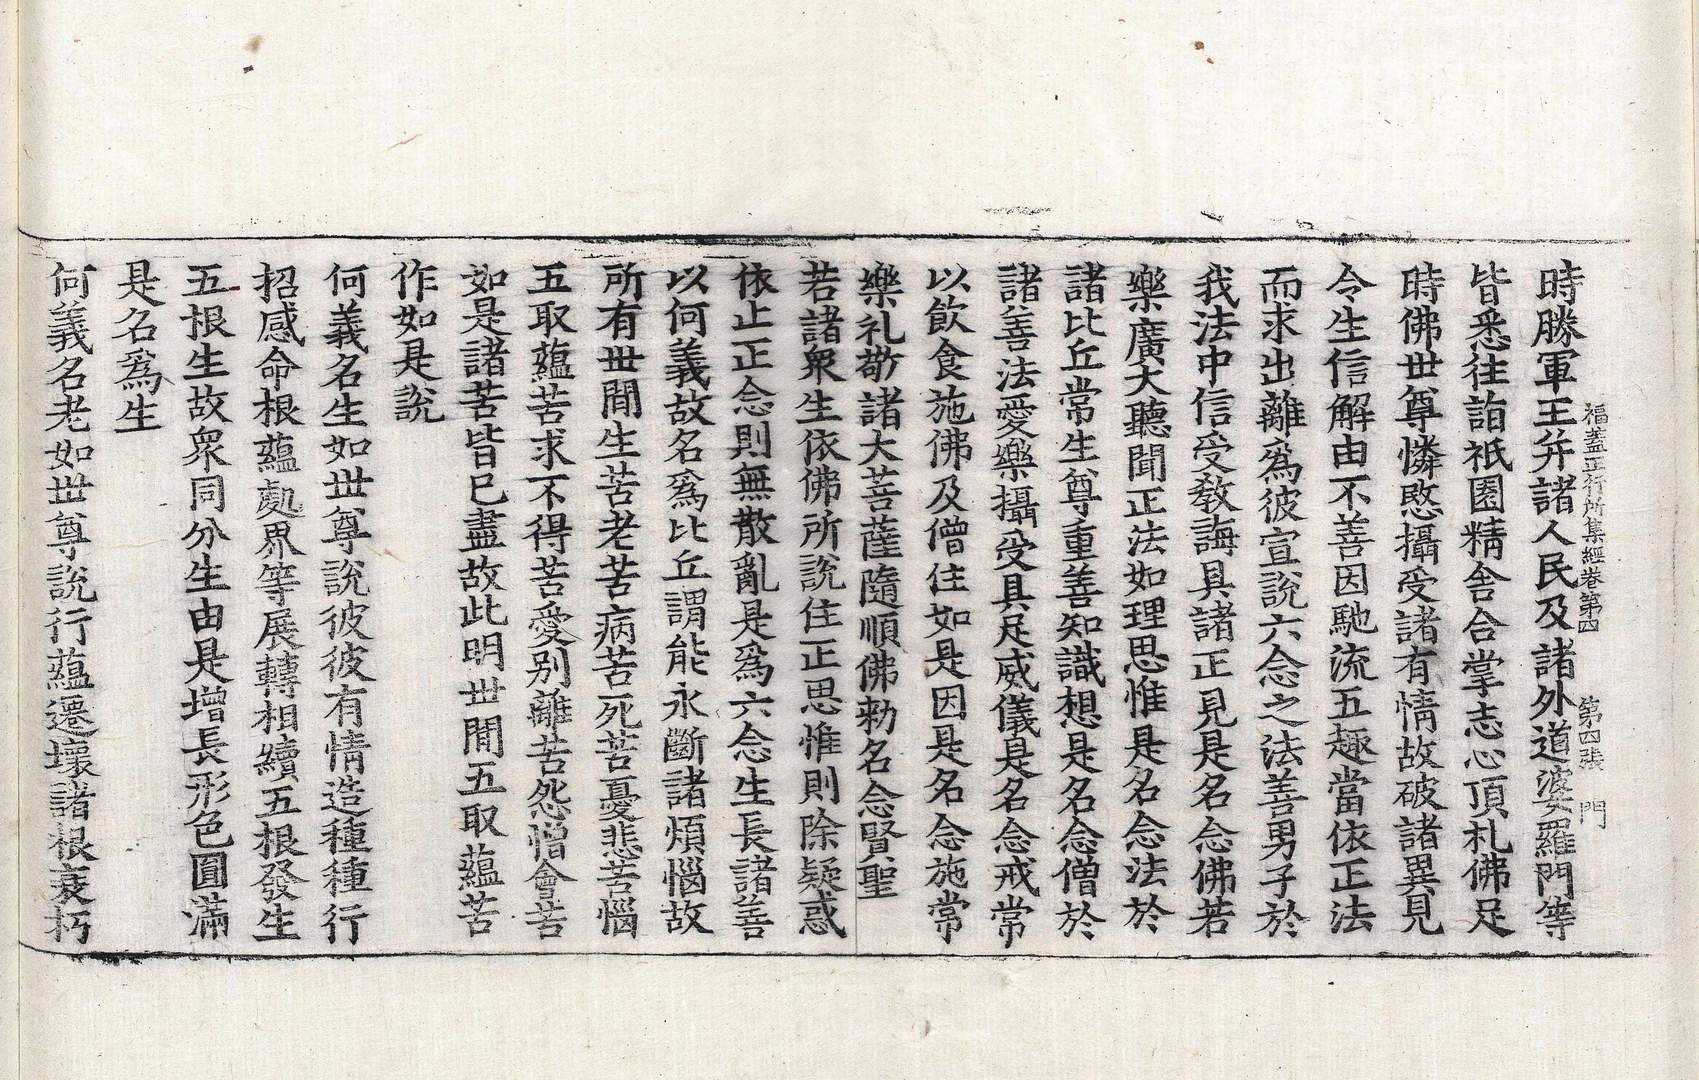 福蓋正行所集經卷第四 第四張 門
時勝軍王并諸人民及諸外道婆羅門等
皆悉往詣祇園精舍合掌志心頂礼佛足
時佛世尊憐愍攝受諸有情故破諸異見
令生信解由不善因馳流五趣當依正法
而求出離爲彼宣說六念之法善男子於
我法中信受教誨具諸正見是名念佛若
樂廣大聽聞正法如理思惟是名念法於
諸比丘常生尊重善知識想是名念僧於
諸善法愛樂攝受具足威儀是名念戒常
以飲食施佛及僧住如是因是名念施常
樂礼敬諸大菩薩隨順佛勑名念賢聖
若諸衆生依佛所說住正思惟則除疑惑
依止正念則無散亂是爲六念生長諸善
以何義故名爲比丘謂能永斷諸煩惱故
所有世間生苦老苦病苦死苦憂悲苦惱
五取蘊苦求不得苦愛别離苦怨憎會苦
如是諸苦皆已盡故此明世間五取蘊苦
作如是說
何義名生如世尊說彼彼有情造種種行
招感命根蘊處界等展轉相續五根發生
五根生故衆同分生由是增長形色圓滿
是名爲生
何義名老如世尊說行蘊遷壞諸根衰朽